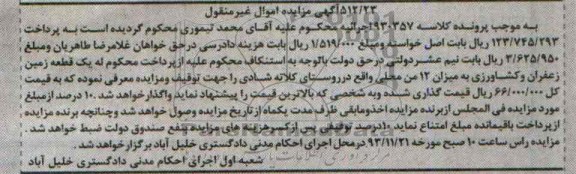 ۵۱۲/۲۳آگهی مزایده اموال غیرمنقول
به موجب پرونده کلاسه ۹۳۰۳۵۷اجرائیه محکوم علیه آقای محمد تیموری محکوم گردیده است به پرداخت
۱۲۳/۷۴۵/۲۹۳ ریال بابت اصل خواسته ومبلغ ۱/۵۱۹/۰۰۰ ریال بابت هزینه دادرسی درحق خواهان غلامرضا طاهریان ومبلغ
۳/۶۲۵/۹۵۰ ریال بابت نیم عشردولتی درحق دولت باتوجه به استنکاف محکوم علیه ازپرداخت محکوم له یک قطعه زمین
زعفران وکشاورزی به میزان ۱۲ من محلی واقع درروستای کلاته شادی را جهت توقیف ومزایده معرفی نموده که به قیمت
کل ۶۶/۰۰۰/۰۰۰ ریال قیمت گذاری شده وبه شخصی که بالاترین قیمت را پیشنهاد نماید واگذارخواهد شد . ۱۰ درصد ازمبلغ
مورد مزایده فی المجلس ازبرنده مزایده اخذومابقی ظرف مدت یکماه ازتاریخ مزایده وصول خواهد شد وچنانچه برنده مزایده
ازپرداخت باقیمانده مبلغ امتناع نماید ۱۰درصد توقیفی پس ازکسرهزینه های مزایده بنفع صندوق دولت ضبط خواهد شد .
مزایده راس ساعت ۱۰ صبح مورخه ۹۳/۱۱/۲۱ درمحل اجرای احکام مدنی دادگستری خلیل آباد برگزارخواهد شد .
شعبه اول اجرای احکام مدنی دادگستری خلیل آباد